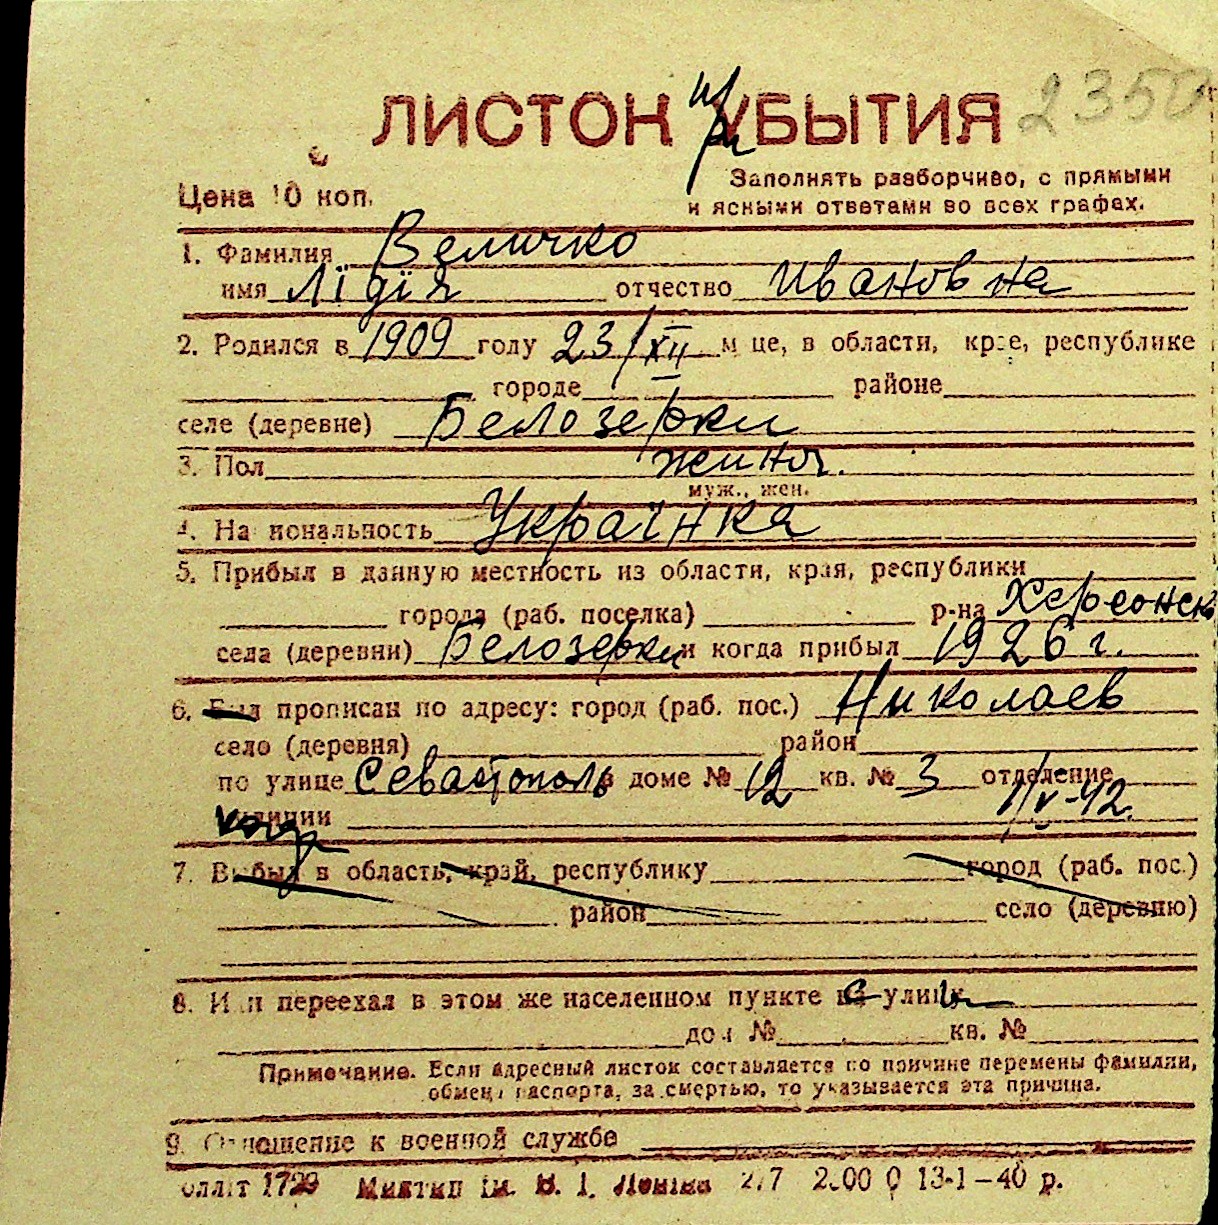 2350
ЛИСТОК при УБЫТИЯ
Цена 10 коп.
Заполнять разборчиво, с прямыми
и ясными ответами во всех графах.
1. Фамилия Величко
имя Лідія отчество Ивановна
2. Родился в 1909 году 23/XII м це, в области, крае, республике
городе районе
селе (деревне) Белозерки
3. Пол жіноч.
муж., жен.
4. На иональность Українка
5. Прибыл в данную местность из области, края, республики
города (раб. поселка) р-на Херсонск
села (деревни) Белозерки и когда прибыл 1926 г.
6. Был прописан по адресу: город (раб. пос.) Николаев
село (деревня) район
по улице Севастополь в доме № 12 кв. № 3 отделение
милиции 1/V-42.
7. Выбыл в область, край, республику город (раб. пос.)
район село (деревню)
8. Или переехал в этом же населенном пункте с улицы
дом № кв. №
Примечание. Если адресный листок составляется по причине перемены фамилии,
обмена паспорта, за смертью, то указывается эта причина.
9. Отношение к военной службе
1729 Ленина 13-1-40 р.